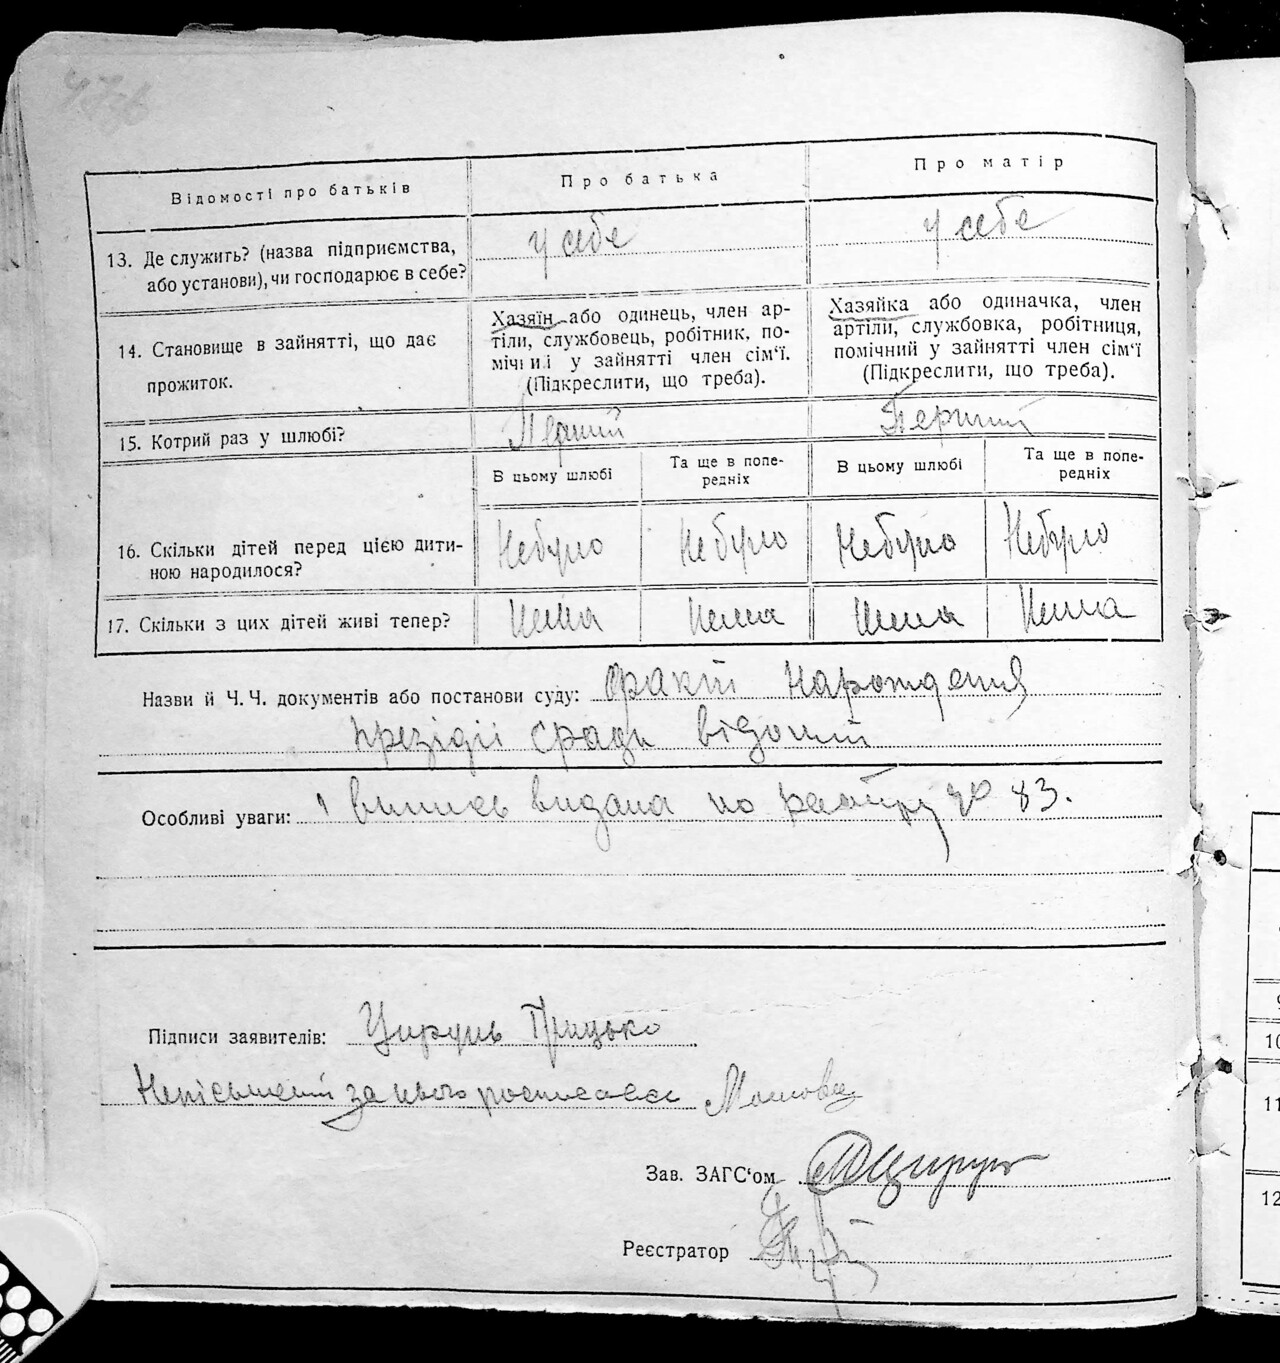 Відомості про батьків
Про батька
Про матір
13. Де служить? (назва підприємства,
або установи), чи господарює в себе?
у себе
у себе
14. Становище в зайнятті, що дає
прожиток.
Хазяїн або одинець, член ар-
тіли, службовець, робітник, по-
мічний у зайнятті член сім‘ї.
(Підкреслити, що треба).
Хазяйка або одиначка, член
артіли, службовка, робітниця,
помічний у зайнятті член сім‘ї
(Підкреслити, що треба).
15. Котрий раз у шлюбі?
Перший
Перший
В цьому шлюбі
Та ще в попе-
редніх
В цьому шлюбі
Та ще в попе-
редніх
16. Скільки дітей перед цією дити-
ною народилося?
Небуло
Небуло
Небуло
Небуло
17. Скільки з цих дітей живі тепер?
Нема
Нема
Нема
Нема
Назви й Ч. Ч. документів або постанови суду: Факт Нарождения
презідії сради відомий
Особливі уваги: 1 випись видана по реєстру № 83.
Підписи заявителів: Цируль Грицько
Неписьмений за нього росписався
Зав. ЗАГС‘ом
Реєстратор
9
10
11
12